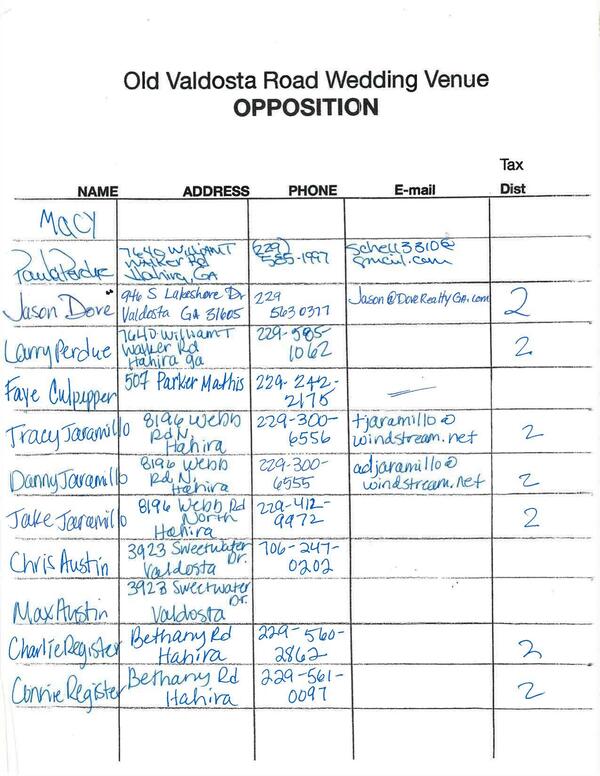 Old Valdosta Road Wedding Venue
OPPOSITION
Tax
NAME ADDRESS PHONE E-mail Dist
Macy
Paula Perdue 7640 William T Walker Rd Hahira, GA (229) 585-1997 Schell3310@gmail.com
Jason Dove 946 S Lakeshore Dr Valdosta GA 31605 229 563 0377 Jason@DoveRealtyGA.com 2
Larry Perdue 7640 William T Walker Rd Hahira ga 229-585-1062 2
Faye Culpepper 507 Parker Mathis 229-242-2175
Tracy Jaramillo 8196 Webb Rd N, Hahira 229-300-6556 tjaramillo@windstream.net 2
Danny Jaramillo 8196 Webb Rd N, Hahira 229-300-6555 adjaramillo@windstream.net 2
Jake Jaramillo 8196 Webb Rd North Hahira 229-412-9972 2
Chris Austin 3923 Sweetwater Dr. Valdosta 706-247-0202
Max Austin 3923 Sweetwater Dr. Valdosta
Charlie Register Bethany Rd Hahira 229-560-2862 2
Connie Register Bethany Rd Hahira 229-561-0097 2